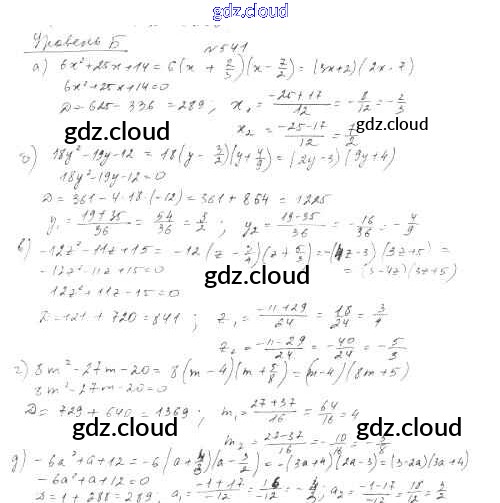 gdz.cloud
Уровень Б
№541
а) 6x²+25x+14=6(x+2/3)(x-7/2)=(3x+2)(2x-7)
6x²+25x+14=0
D=625-336=289; x₁=(-25+17)/12=-8/12=-2/3
gdz.cloud
x₂=(-25-17)/12=7/2
gdz.cloud
б) 18y²-19y-12=18(y-3/2)(y+4/9)=(2y-3)(9y+4)
18y²-19y-12=0
D=361-4·18·(-12)=361+864=1225
y₁=(19+35)/36=54/36=3/2; y₂=(19-35)/36=-16/36=-4/9
в) -12z²-11z+15=-12(z-3/4)(z+5/3)=-(4z-3)(3z+5)=
-12z²-11z+15=0
=(3-4z)(3z+5)
gdz.cloud
12z²+11z-15=0
D=121+720=841; z₁=(-11+29)/24=18/24=3/4
gdz.cloud
z₂=(-11-29)/24=-40/24=-5/3
г) 8m²-27m-20=8(m-4)(m+5/8)=(m-4)(8m+5)
8m²-27m-20=0
D=729+640=1369; m₁=(27+37)/16=64/16=4
gdz.cloud
m₂=(27-37)/16=-10/16=-5/8
gdz.cloud
д) -6a²+a+12=-6(a+4/3)(a-3/2)=-(3a+4)(2a-3)=(3-2a)(3a+4)
-6a²+a+12=0
D=1+288=289. a₁=(-1+17)/-12=16/-12=-4/3; a₂=(-1-17)/-12=18/12=3/2